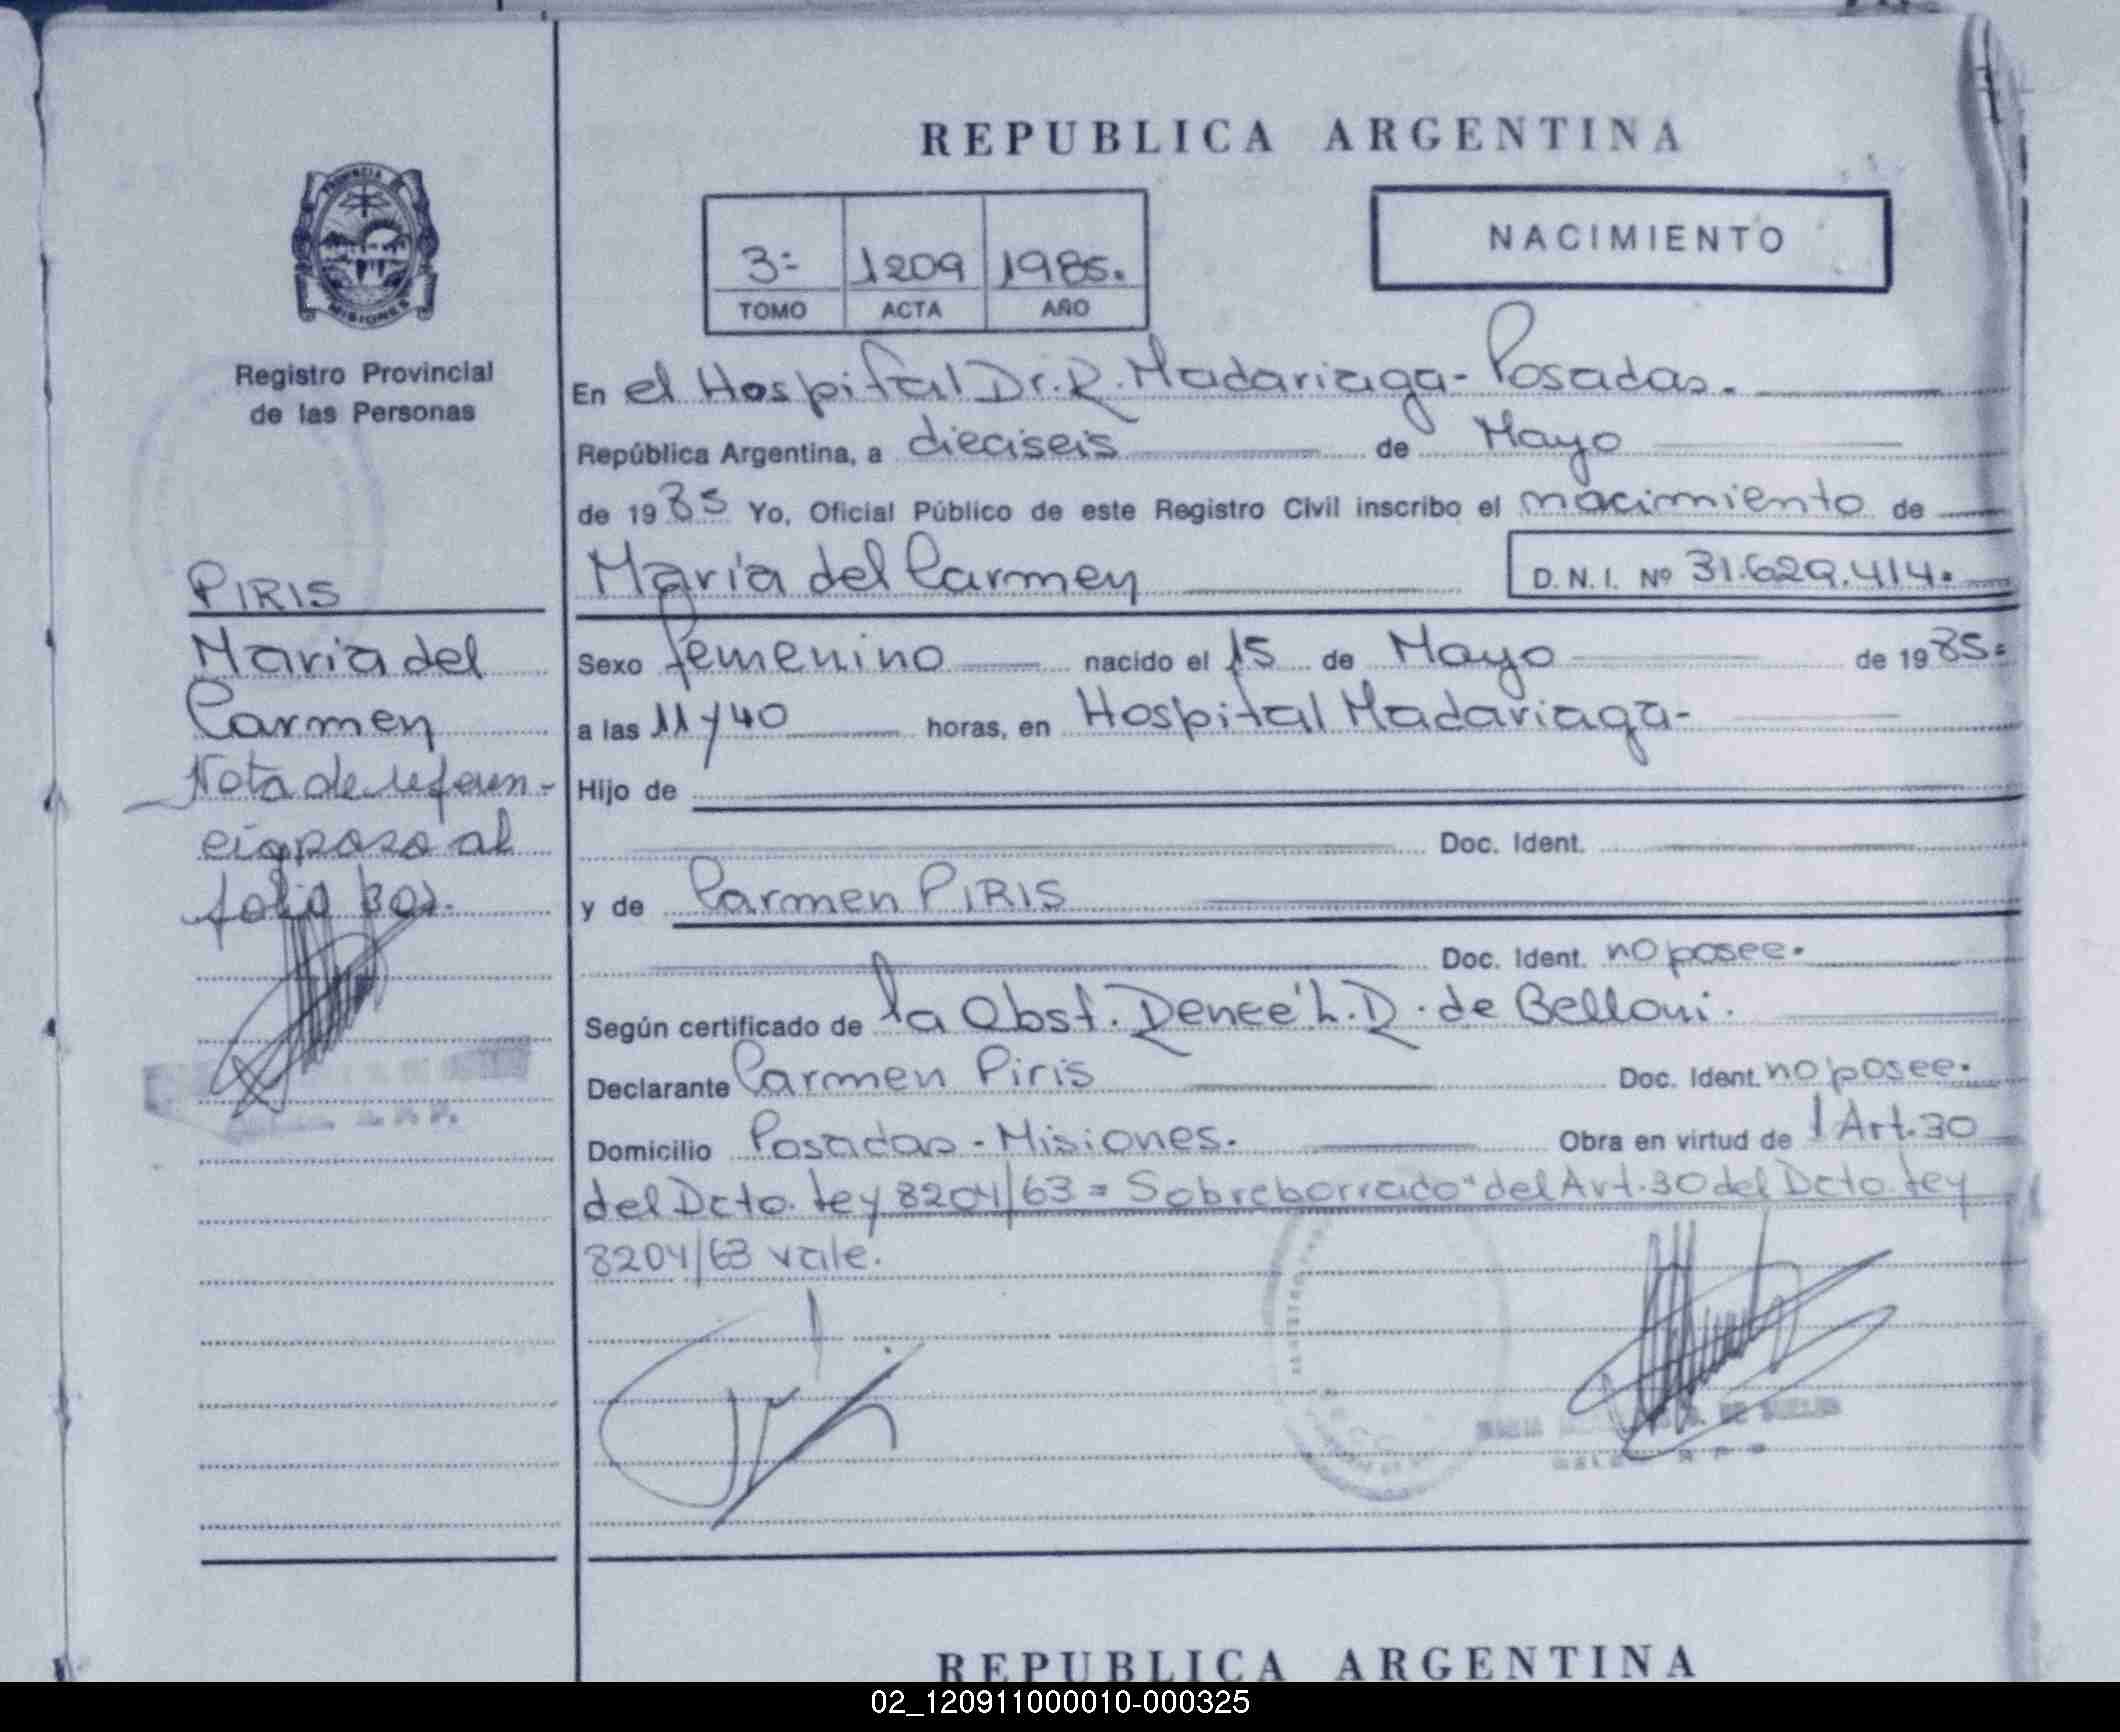 REPUBLICA ARGENTINA
PROVINCIA DE
MISIONES
Registro Provincial
de las Personas
3=
1209
1985.
TOMO
ACTA
AÑO
NACIMIENTO
En el Hospital Dr. R. Madariaga - Posadas.
República Argentina, a dieciseis de Mayo
de 1985 Yo, Oficial Público de este Registro Civil inscribo el nacimiento de
María del Carmen
D. N. I. Nº 31.629.414.
Sexo femenino nacido el 15 de Mayo de 1985.
a las 11 y 40 horas, en Hospital Madariaga-
Hijo de
Doc. Ident.
y de Carmen PIRIS
Doc. Ident. no posee.
Según certificado de la Obst. Deneé L. D. de Belloni.
Declarante Carmen Piris Doc. Ident. no posee.
Domicilio Posadas - Misiones. Obra en virtud de l Art. 30
del Dcto. Ley 8204/63 = Sobreborrado "del Art. 30 del Dcto. Ley
8204/63 vale.
PIRIS
María del
Carmen
Nota de referen-
cia paso al
folio
REPUBLICA ARGENTINA
02_120911000010-000325